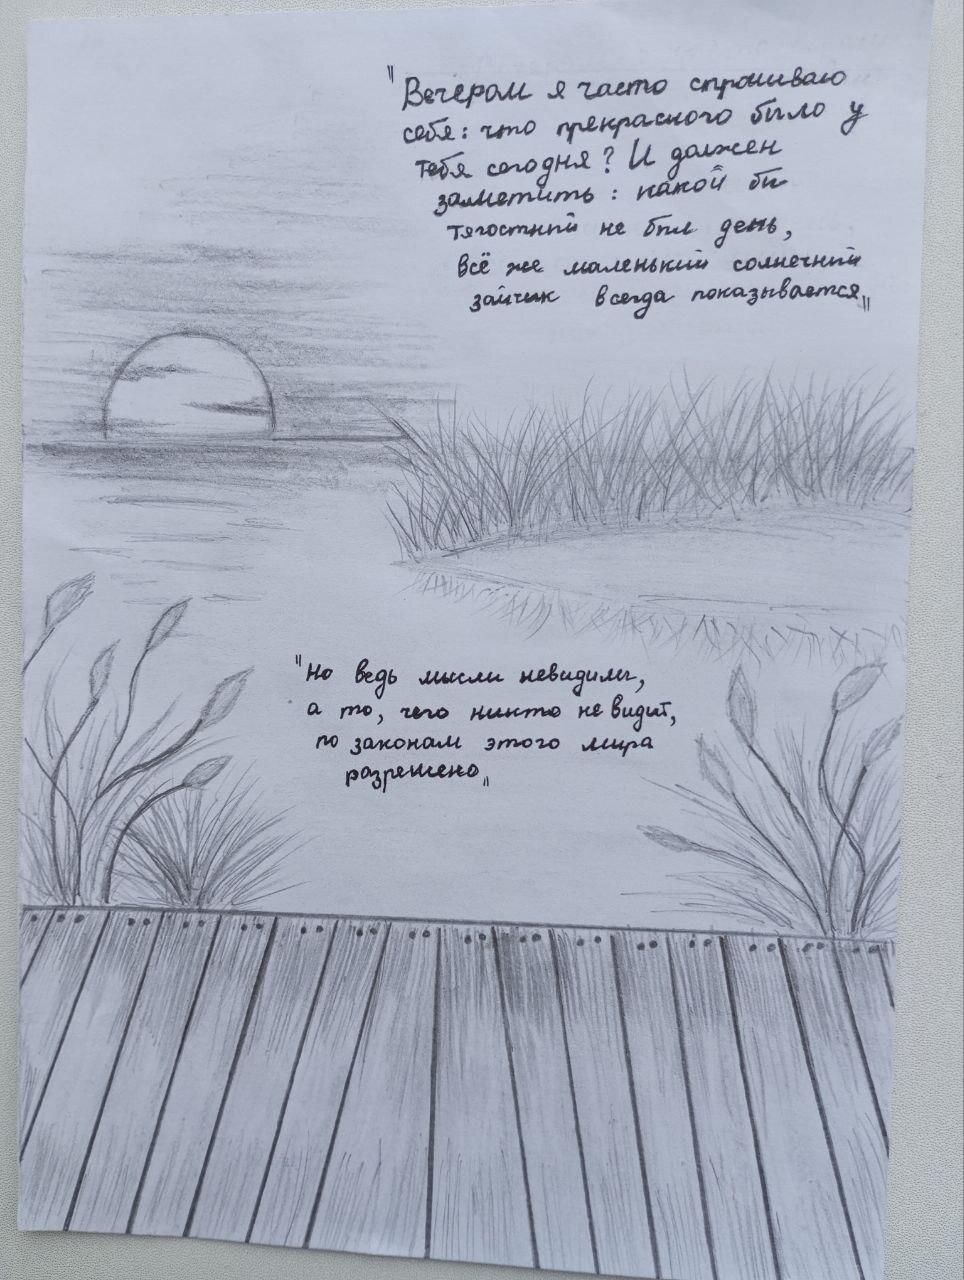 "Вечером я часто спрашиваю
себя: что прекрасного было у
тебя сегодня? И должен
заметить: какой бы
тягостный не был день,
всё же маленький солнечный
зайчик всегда показывается"
"Но ведь мысли невидимы,
а то, чего никто не видит,
по законам этого мира
разрешено"